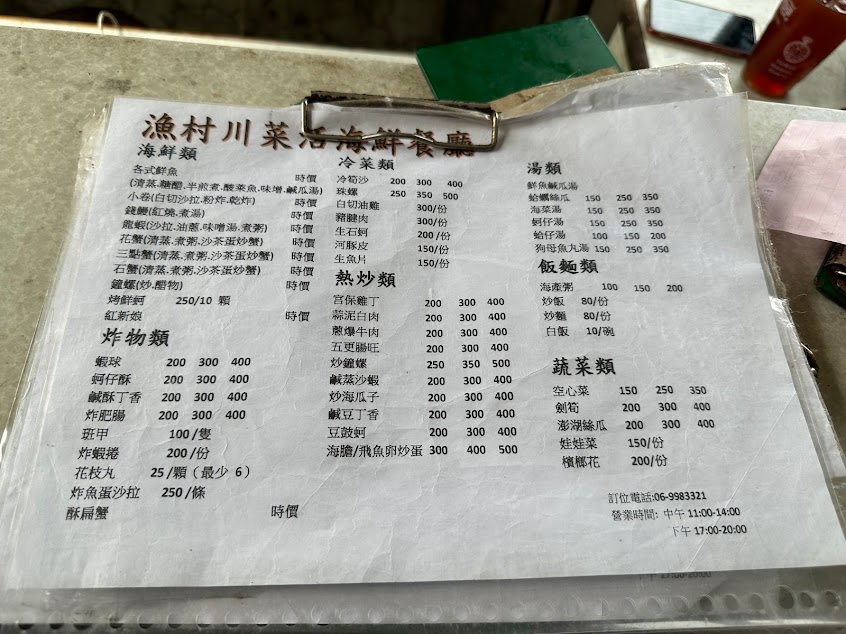 漁村川菜活海鮮餐廳
海鮮類
各式鮮魚 時價
(清蒸.糖醋.半煎煮.酸菜魚.味增.鹹瓜湯)
小卷(白切沙拉.粉炸.乾炸) 時價
錢鰻(紅燒.煮湯) 時價
龍蝦(沙拉.油蔥.味噌湯.煮粥) 時價
花蟹(清蒸.煮粥.沙茶蛋炒蟹) 時價
三點蟹(清蒸.煮粥.沙茶蛋炒蟹) 時價
石蟹(清蒸.煮粥.沙茶蛋炒蟹) 時價
鐘螺(炒.醋物) 時價
烤鮮蚵 250/10 顆
紅新娘 時價
炸物類
蝦球 200 300 400
蚵仔酥 200 300 400
鹹酥丁香 200 300 400
炸肥腸 200 300 400
班甲 100/隻
炸蝦捲 200/份
花枝丸 25/顆(最少 6)
炸魚蛋沙拉 250/條
酥扁蟹 時價
冷菜類
冷筍沙 200 300 400
珠螺 250 350 500
白切油雞 300/份
豬腱肉 300/份
生石蚵 200/份
河豚皮 150/份
生魚片 150/份
熱炒類
宮保雞丁 200 300 400
蒜泥白肉 200 300 400
蔥爆牛肉 200 300 400
五更腸旺 200 300 400
炒鐘螺 250 350 500
鹹蒸沙蝦 200 300 400
炒海瓜子 200 300 400
鹹豆丁香 200 300 400
豆鼓蚵 200 300 400
海膽/飛魚卵炒蛋 300 400 500
湯類
鮮魚鹹瓜湯
蛤蠣絲瓜 150 250 350
海菜湯 150 250 350
蚵仔湯 150 250 350
蛤仔湯 100 150 200
狗母魚丸湯 150 250 350
飯麵類
海產粥 100 150 200
炒飯 80/份
炒麵 80/份
白飯 10/碗
蔬菜類
空心菜 150 250 350
劍筍 200 300 400
澎湖絲瓜 200 300 400
娃娃菜 150/份
檳榔花 200/份
訂位電話:06-9983321
營業時間: 中午 11:00-14:00
下午 17:00-20:00